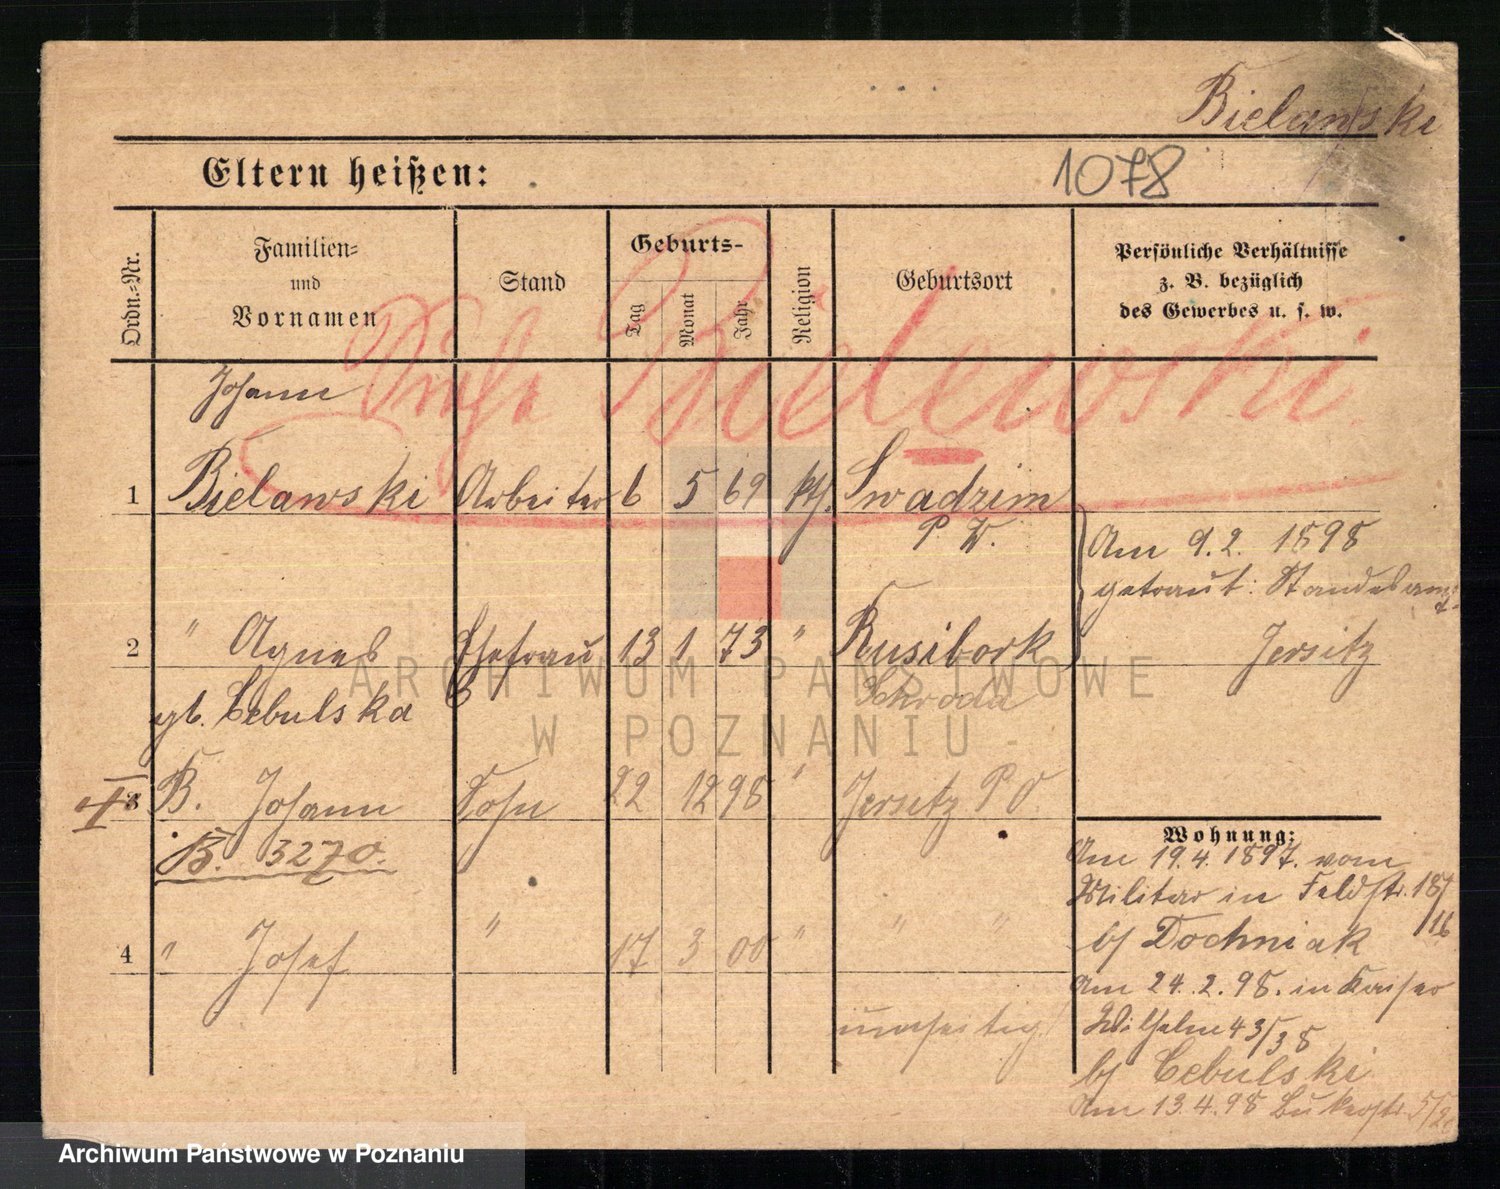 Bielawski
Eltern heißen:
1078
Ordn.-Nr.
Familien-
und
Vornamen
Stand
Geburts-
Tag
Monat
Jahr
Religion
Geburtsort
Persönliche Verhältnisse
z. B. bezüglich
des Gewerbes u. s. w.
Siehe Bielewski
Johann
1 Bielawski Arbeiter 6 5 69 kth. Swadzim
P. W.
Am 9.2. 1898
getraut: Standesamt
Jersitz
2 " Agnes Ehefrau 13 1 73 " Rusibork
gb. Cebulska Schroda
II 3 B. Johann Sohn 22 12 98 " Jersitz P O.
B. 3270.
4 " Josef " 17 3 00 " " "
umseitig
Wohnung:
Am 19.4.1897. vom
Militär in Feldstr. 18/
116
b/ Dochniak
Am 24.2.98. in Kaiser
Wilhelm 43/38
b/ Cebulski
Am 13.4.98 5/2
ARCHIWUM PAŃSTWOWE
W POZNANIU
Archiwum Państwowe w Poznaniu